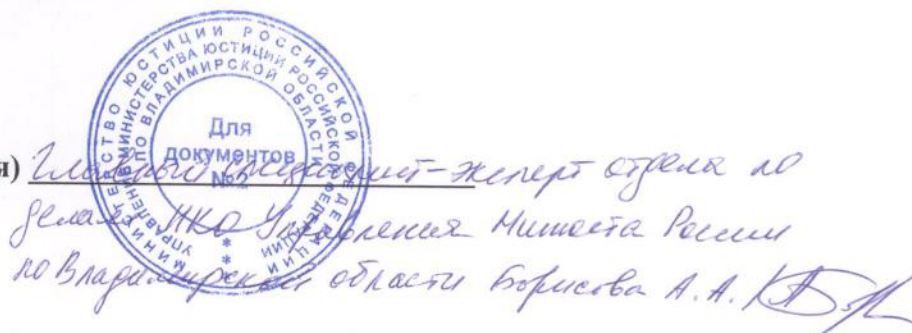 МИНИСТЕРСТВО ЮСТИЦИИ РОССИЙСКОЙ ФЕДЕРАЦИИ
УПРАВЛЕНИЕ МИНИСТЕРСТВА ЮСТИЦИИ РОССИЙСКОЙ ФЕДЕРАЦИИ
ПО ВЛАДИМИРСКОЙ ОБЛАСТИ
Для
документов
№2
* * *
я) Главный специалист-эксперт отдела по
делам НКО Управления Минюста России
по Владимирской области Борисова А.А.